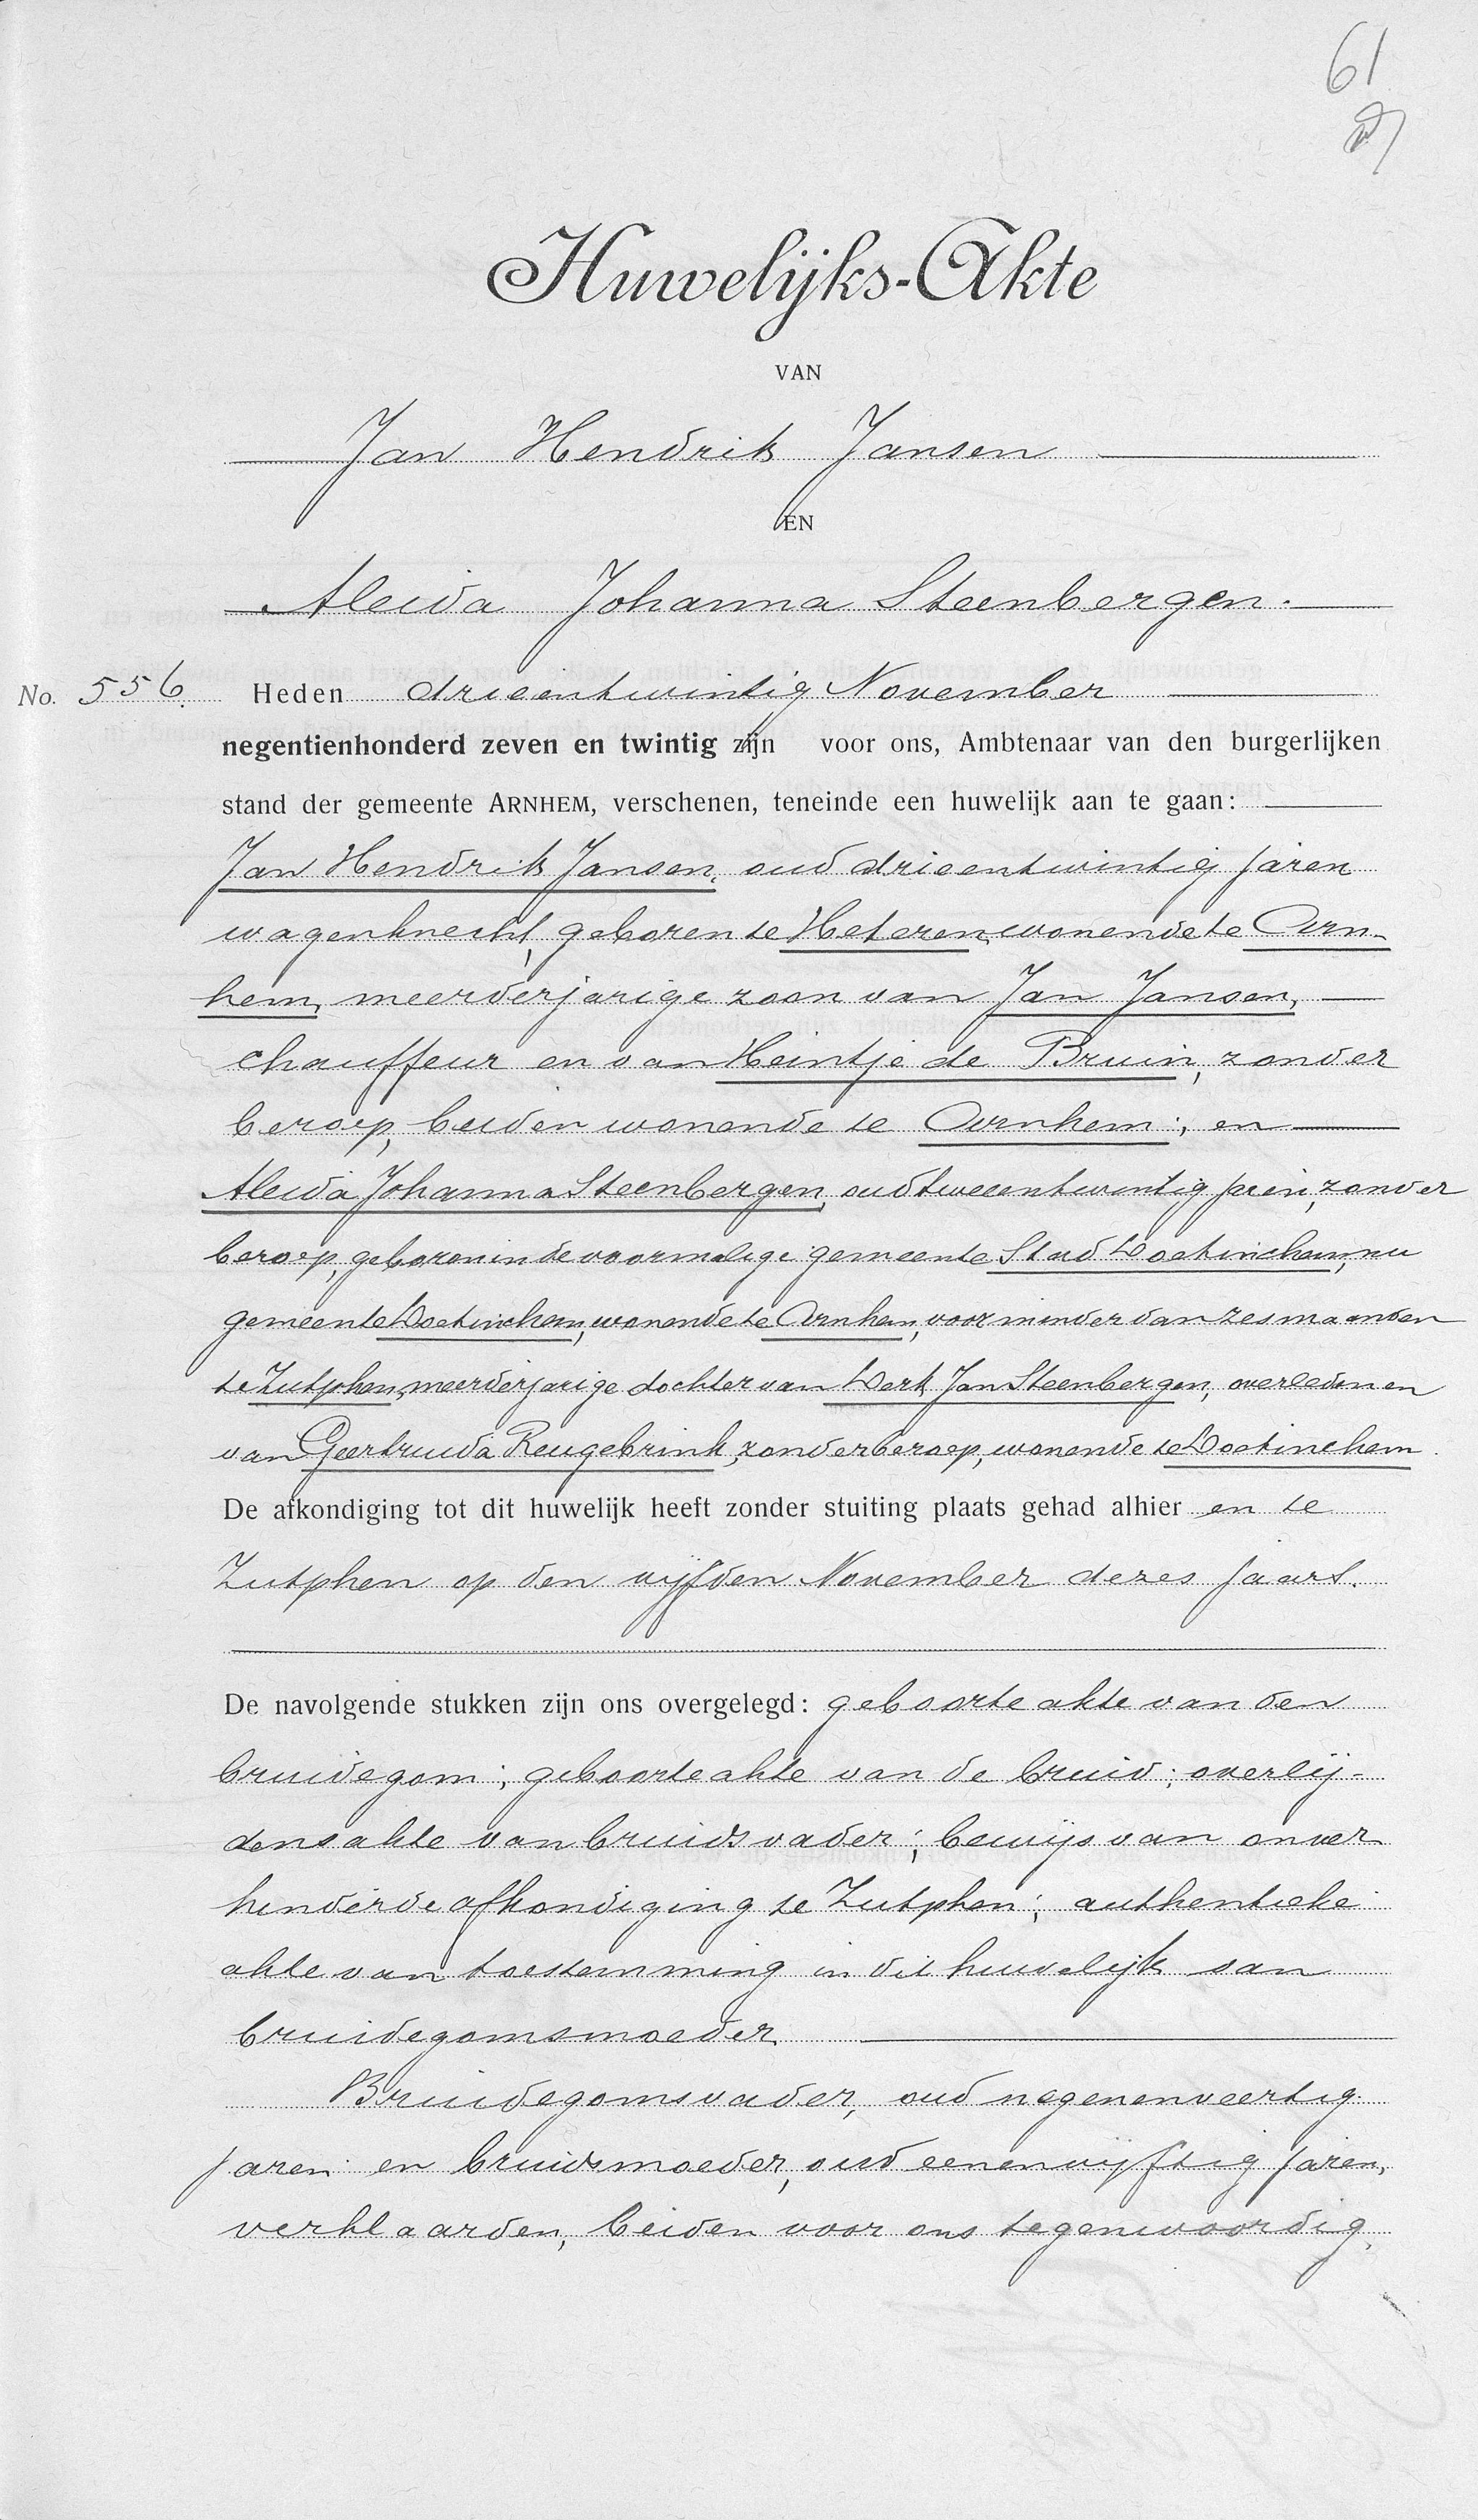 61
Huwelijks-Akte
VAN
Jan Hendrik Jansen
EN
Aleida Johanna Steenbergen.
No. 556. Heden drieentwintig November
negentienhonderd zeven en twintig zijn voor ons, Ambtenaar van den burgerlijken
stand der gemeente ARNHEM, verschenen, teneinde een huwelijk aan te gaan:
Jan Hendrik Jansen, oud drieentwintig jaren
wagenknecht, geboren te Heteren, wonende te Arn-
hem, meerderjarige zoon van Jan Jansen,
chauffeur en van Heintje de Bruin, zonder
beroep, beiden wonende te Arnhem; en
Aleida Johanna Steenbergen, oud tweeentwintig jaren, zonder
beroep, geboren in de voormalige gemeente Stad Doetinchem, nu
gemeente Doetinchem, wonende te Arnhem, voor minder dan zes maanden
te Zutphen, meerderjarige dochter van Derk Jan Steenbergen, overleden en
van Geertruida Reugebrink, zonder beroep, wonende te Doetinchem.
De afkondiging tot dit huwelijk heeft zonder stuiting plaats gehad alhier en te
Zutphen op den vijfden November dezes jaars.
De navolgende stukken zijn ons overgelegd: geboorteakte van den
bruidegom; geboorteakte van de bruid; overlij-
densakte van bruidsvader; bewijs van onver
hinderde afkondiging te Zutphen; authentieke
akte van toestemming in dit huwelijk van
bruidegomsmoeder.
Bruidegomsvader, oud negenenveertig
jaren en bruidsmoeder, oud eenenvijftig jaren,
verklaarden, beiden voor ons tegenwoordig,